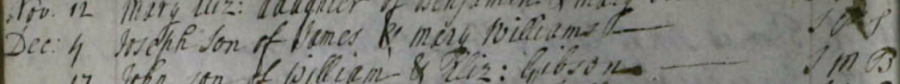 Nov. 12 Mary Eliz: daughter of Benjamin & Mary
Dec: 4 Joseph son of James & Mary Williams
17 John son of William & Eliz: Gibson J M B